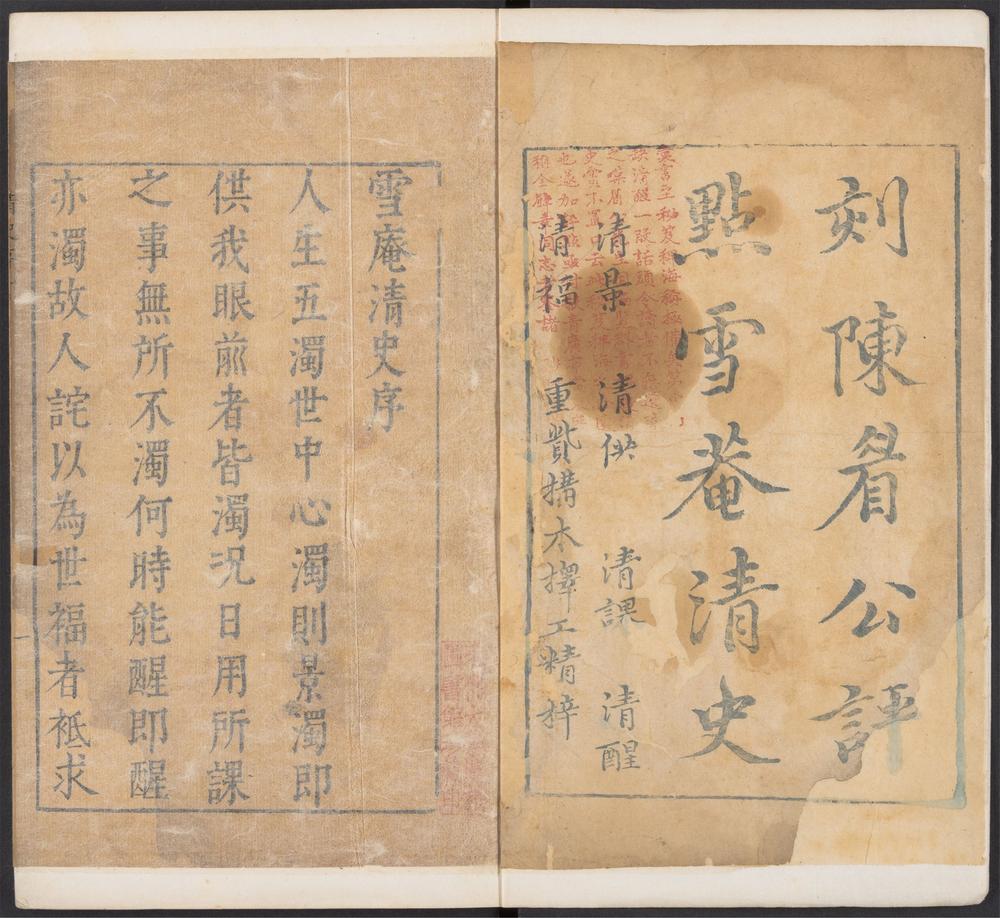 刻陳眉公評
點雪菴清史
清醒一段話頭令
也遂加
清景　清供　清課　清醒
清福　重貲搆本擇工精梓
雪庵清史序
人生五濁世中心濁則景濁即
供我眼前者皆濁況日用所課
之事無所不濁何時能醒即醒
亦濁故人詫以為世福者袛求